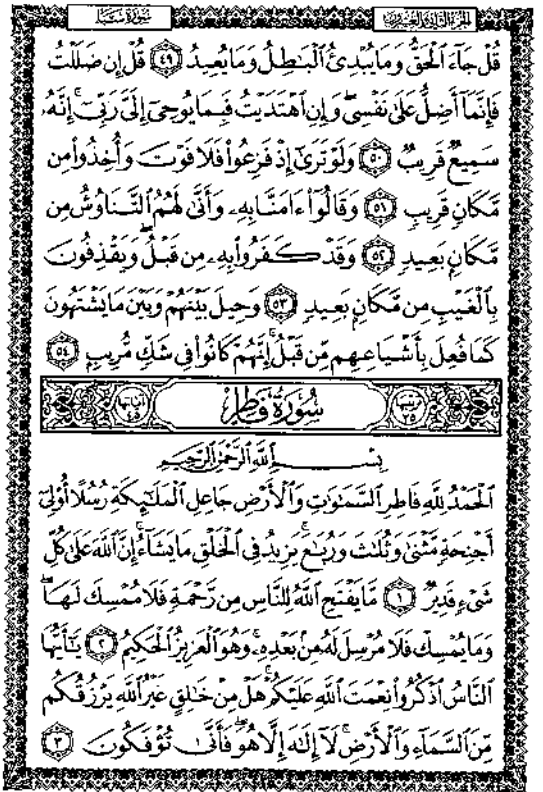 الجزء الثاني والعشرون
سورة سبإ
قُلْ جَآءَ ٱلْحَقُّ وَمَا يُبْدِئُ ٱلْبَٰطِلُ وَمَا يُعِيدُ ٤٩ قُلْ إِن ضَلَلْتُ
فَإِنَّمَآ أَضِلُّ عَلَىٰ نَفْسِى ۖ وَإِنِ ٱهْتَدَيْتُ فَبِمَا يُوحِىٓ إِلَىَّ رَبِّىٓ ۚ إِنَّهُۥ
سَمِيعٌ قَرِيبٌ ٥٠ وَلَوْ تَرَىٰٓ إِذْ فَزِعُوا۟ فَلَا فَوْتَ وَأُخِذُوا۟ مِن
مَّكَانٍ قَرِيبٍ ٥١ وَقَالُوٓا۟ ءَامَنَّا بِهِۦ وَأَنَّىٰ لَهُمُ ٱلتَّنَاوُشُ مِن
مَّكَانٍۭ بَعِيدٍ ٥٢ وَقَدْ كَفَرُوا۟ بِهِۦ مِن قَبْلُ ۖ وَيَقْذِفُونَ
بِٱلْغَيْبِ مِن مَّكَانٍۭ بَعِيدٍ ٥٣ وَحِيلَ بَيْنَهُمْ وَبَيْنَ مَا يَشْتَهُونَ
كَمَا فُعِلَ بِأَشْيَاعِهِم مِّن قَبْلُ ۚ إِنَّهُمْ كَانُوا۟ فِى شَكٍّ مُّرِيبٍۭ ٥٤
ترتيبها ٣٥ سُورَةُ فَاطِرٍ آياتها ٤٥
بِسْمِ ٱللَّهِ ٱلرَّحْمَٰنِ ٱلرَّحِيمِ
ٱلْحَمْدُ لِلَّهِ فَاطِرِ ٱلسَّمَٰوَٰتِ وَٱلْأَرْضِ جَاعِلِ ٱلْمَلَٰٓئِكَةِ رُسُلًا أُو۟لِىٓ
أَجْنِحَةٍ مَّثْنَىٰ وَثُلَٰثَ وَرُبَٰعَ ۚ يَزِيدُ فِى ٱلْخَلْقِ مَا يَشَآءُ ۚ إِنَّ ٱللَّهَ عَلَىٰ كُلِّ
شَىْءٍ قَدِيرٌ ١ مَّا يَفْتَحِ ٱللَّهُ لِلنَّاسِ مِن رَّحْمَةٍ فَلَا مُمْسِكَ لَهَا ۖ
وَمَا يُمْسِكْ فَلَا مُرْسِلَ لَهُۥ مِنۢ بَعْدِهِۦ ۚ وَهُوَ ٱلْعَزِيزُ ٱلْحَكِيمُ ٢ يَٰٓأَيُّهَا
ٱلنَّاسُ ٱذْكُرُوا۟ نِعْمَتَ ٱللَّهِ عَلَيْكُمْ ۚ هَلْ مِنْ خَٰلِقٍ غَيْرُ ٱللَّهِ يَرْزُقُكُم
مِّنَ ٱلسَّمَآءِ وَٱلْأَرْضِ ۚ لَآ إِلَٰهَ إِلَّا هُوَ ۖ فَأَنَّىٰ تُؤْفَكُونَ ٣